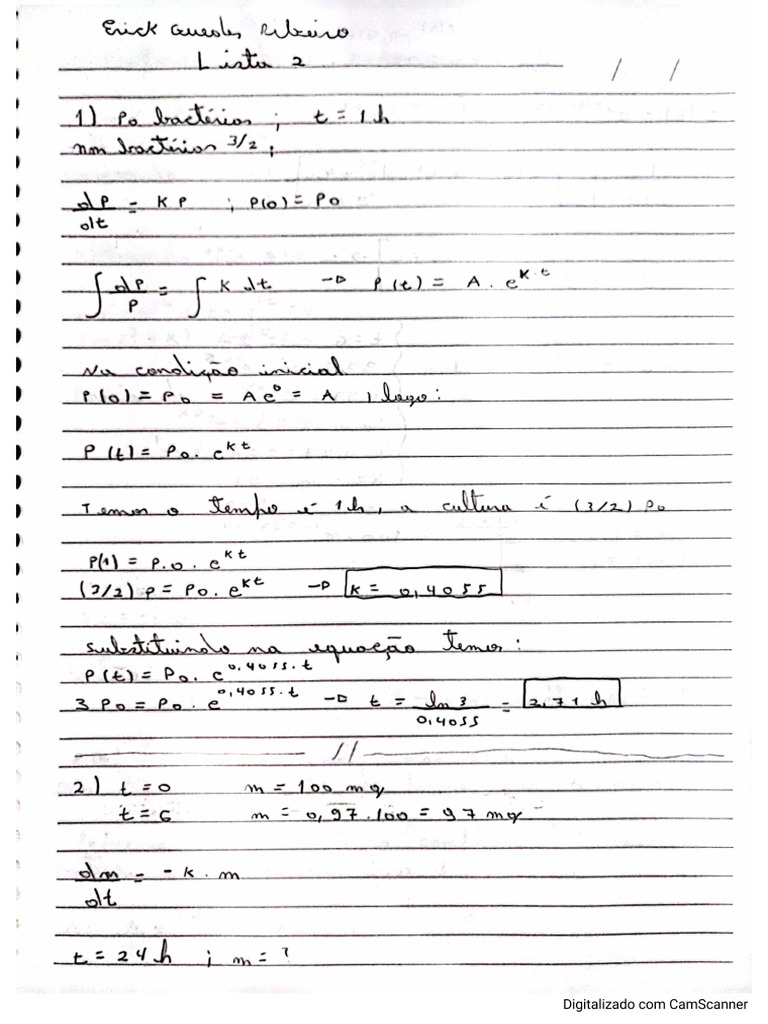 Erick Guedes Ribeiro
Lista 2
/ /
1) Po bactérias ; t = 1 h
num bactérias 3/2 ;
dP/dt = K P ; P(0) = Po
∫ dP/P = ∫ K dt → P(t) = A . e^K.t
Na condição inicial
P(0) = Po = A e^0 = A , logo :
P(t) = Po . e^kt
Temos o tempo é 1h, a cultura é (3/2) Po
P(1) = P.o . e^kt
(3/2) P = Po . e^kt → K = 0,4055
substituindo na equação temos :
P(t) = Po . e^0,4055.t
3 Po = Po . e^0,4055.t → t = ln 3/0,4055 = 2,71 h
//
2) t = 0 m = 100 mg
t = 6 m = 0,97 . 100 = 97 mg
dm/dt = - K . m
t = 24 h ; m = ?
Digitalizado com CamScanner